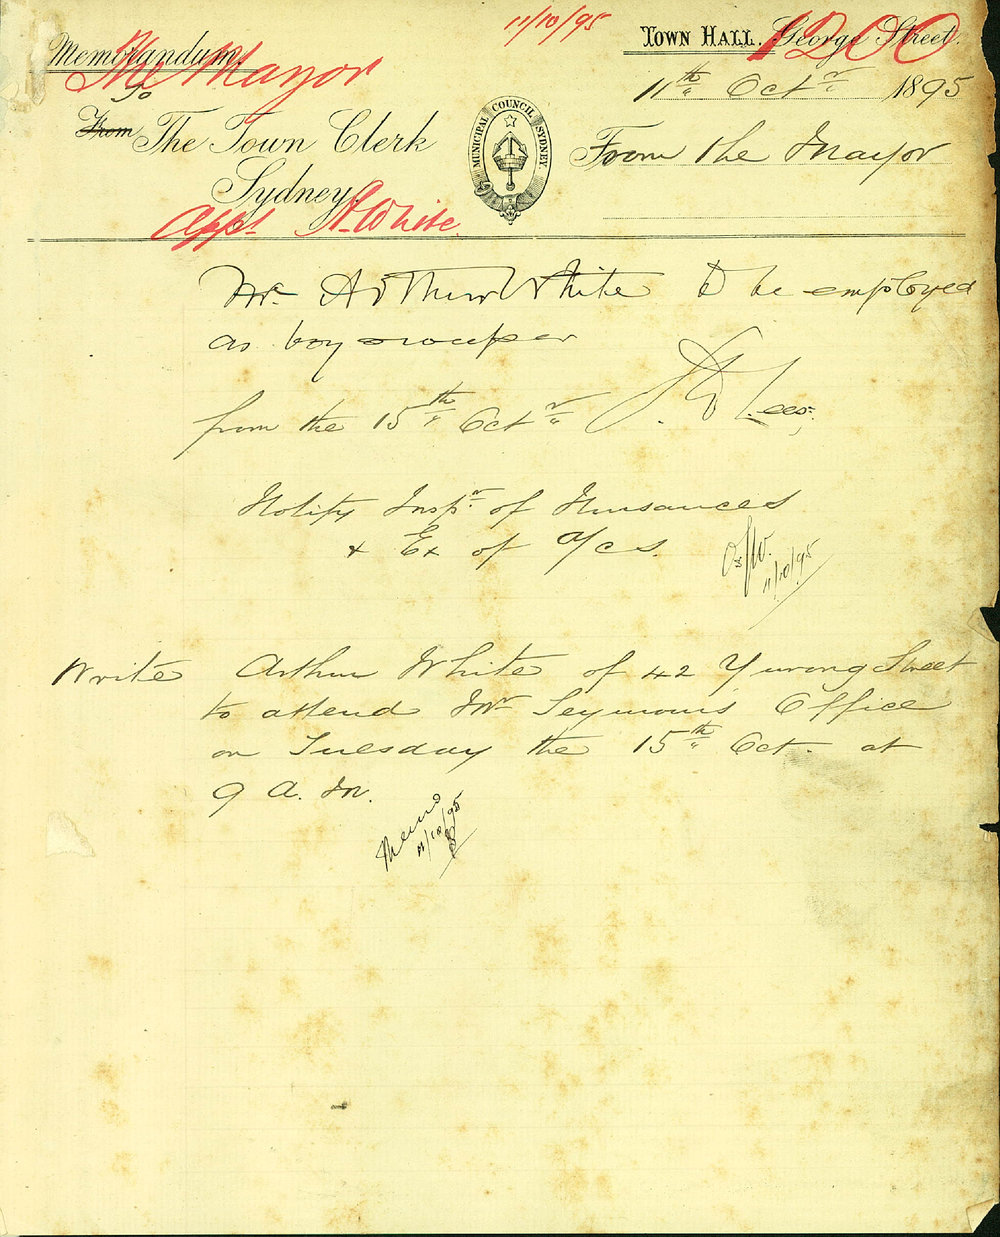 11/10/95
1200
Memorandum.
The Mayor
Town Hall. George Street.
11th Octr 1895
To
From The Town Clerk
Sydney.
MUNICIPAL COUNCIL SYDNEY
From the Mayor
Appt A. White
Mr Arthur White to be employed
as boy sweeper
from the 15th Octr
Lees
Notify Inspr of Nuisances
& Ex of a/cs
11/10/95
Write Arthur White of 42 Yurong Street
to attend Mr Seymour's Office
on Tuesday the 15th Oct. at
9 A.M.
Memo
11/10/95